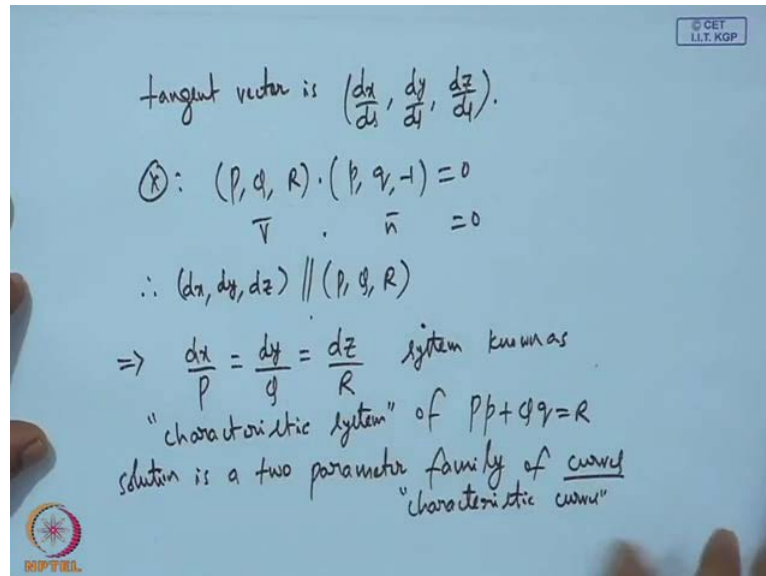 © CET
I.I.T. KGP
tangent vector is (dx/ds, dy/ds, dz/ds).
Ⓧ: (P, Q, R) · (p, q, -1) = 0
V̄ . n̄ = 0
∴ (dx, dy, dz) ∥ (P, Q, R)
⇒ dx/P = dy/Q = dz/R system known as
"characteristic system" of Pp + Qq = R
solution is a two parameter family of curves
"characteristic curves"
NPTEL